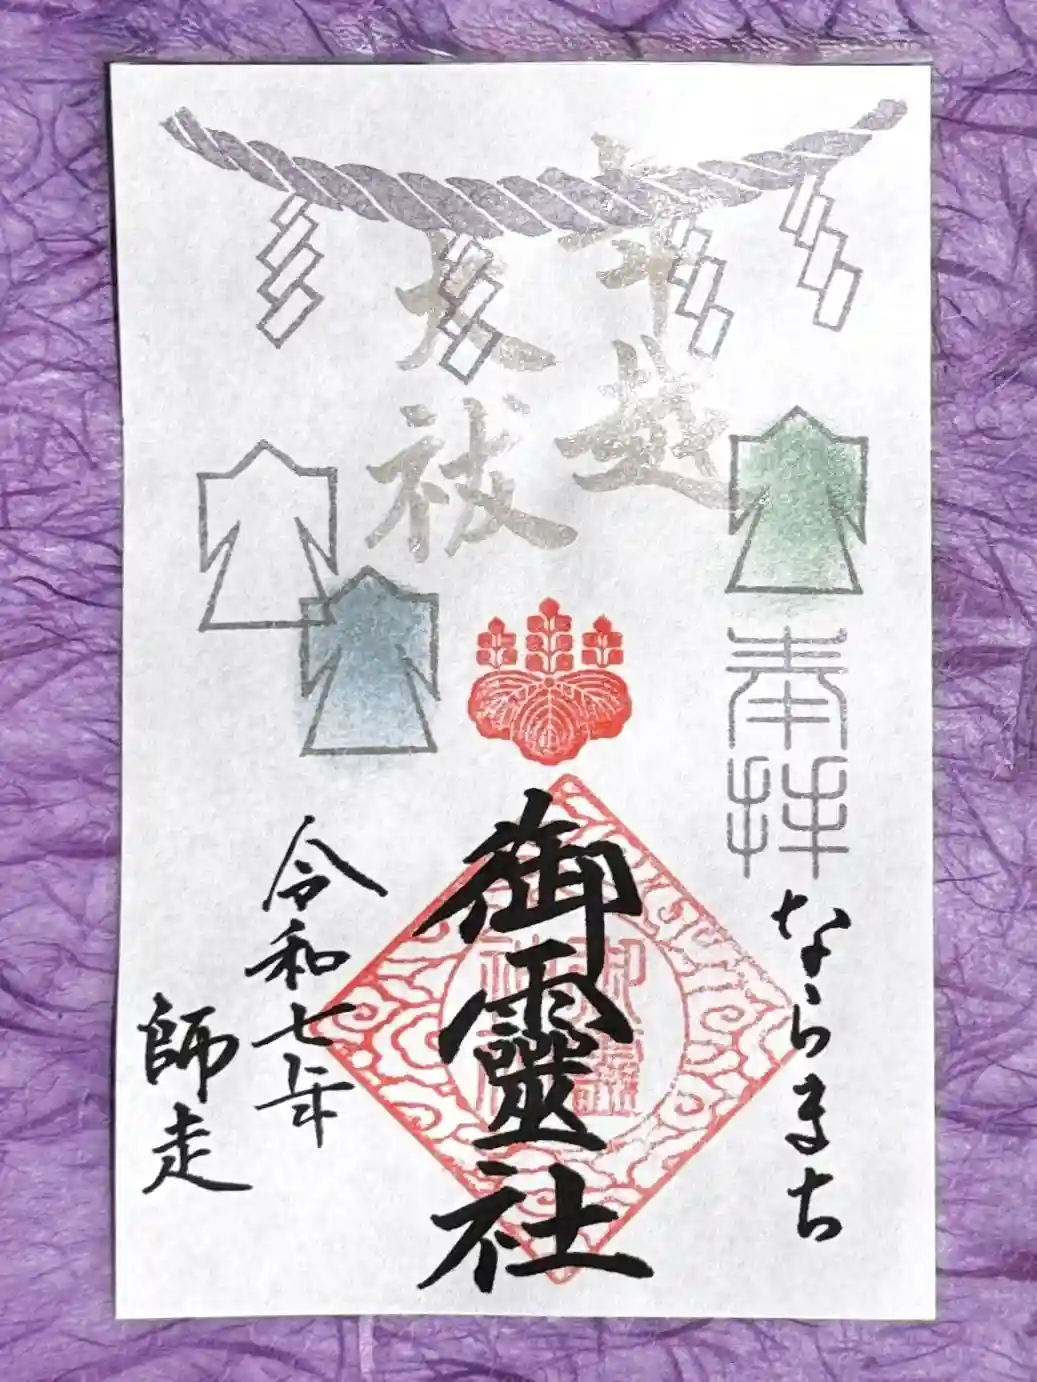 年越
大祓
奉拝
ならまち
御靈社
令和七年
師走